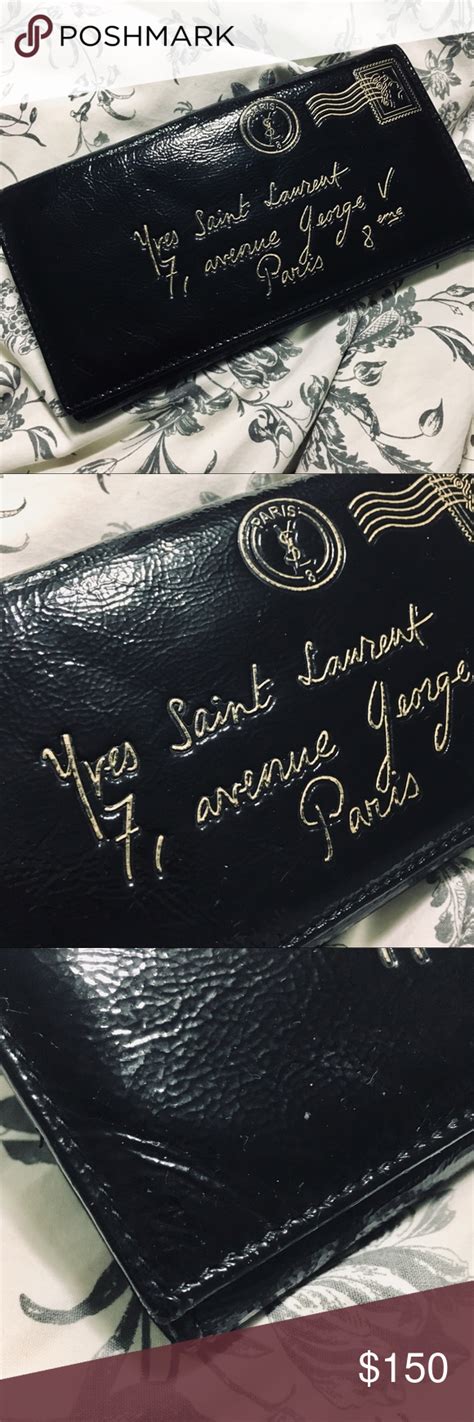 POSHMARK
PARIS
YSL
8
Yves Saint Laurent
7, avenue George V
8 eme
Paris
PARIS
YSL
8
Yves Saint Laurent
7, avenue George
Paris
$150